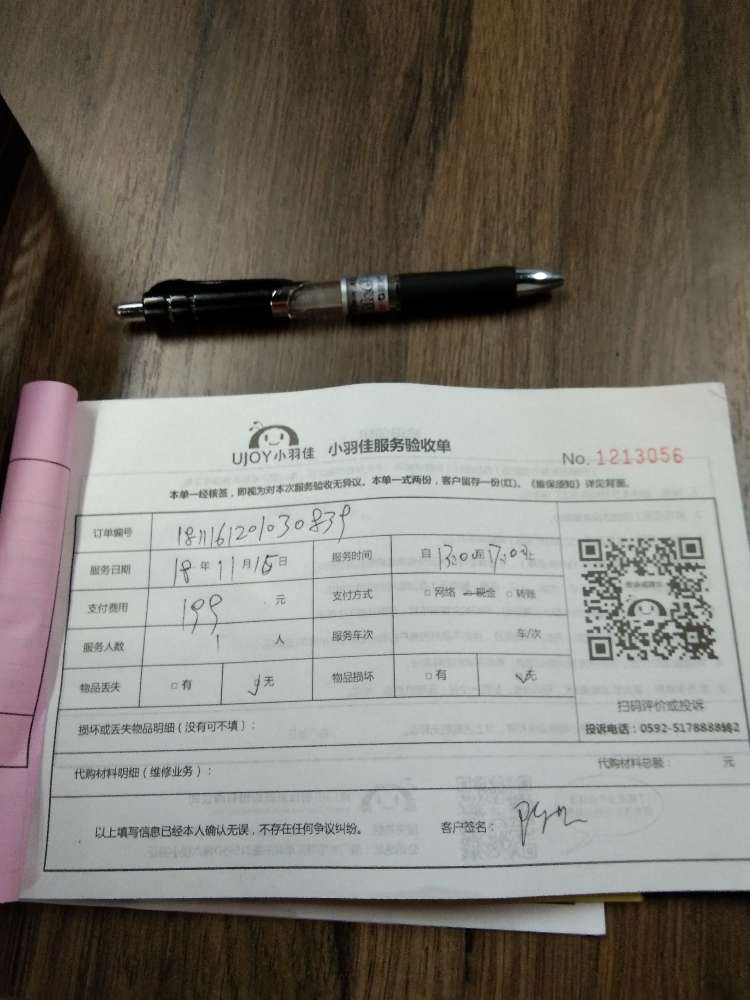 UJOY小羽佳 小羽佳服务验收单
No. 1213056
本单一经核签，即视为对本次服务验收无异议。本单一式两份，客户留存一份(红)。《维保须知》详见背面。
订单编号 181161201030839
服务日期 18年11月15日 服务时间 自13:00至17:00止
支付费用 199 元 支付方式 □网络 □现金 □转账
服务人数 1 人 服务车次 车/次
物品丢失 □有 □无 物品损坏 □有 □无
扫码评价或投诉
投诉电话：0592-5178888转2
损坏或丢失物品明细（没有可不填）：
代购材料明细（维修业务）： 代购材料总额： 元
以上填写信息已经本人确认无误，不存在任何争议纠纷。 客户签名：